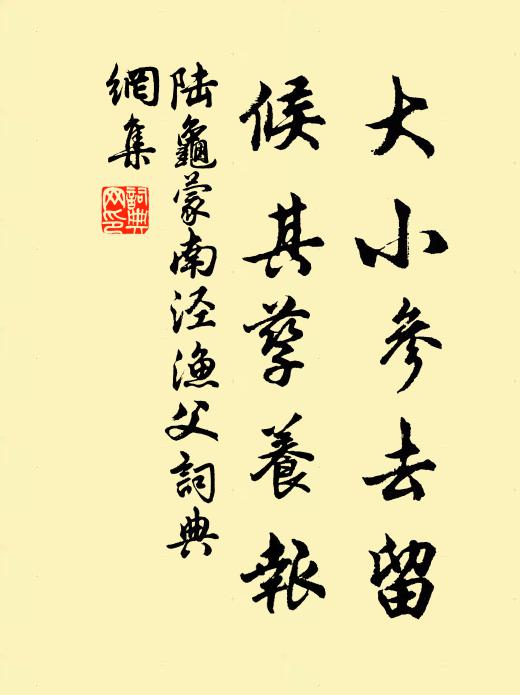 大小參去留
候其孳養報
陆龜蒙南泾漁父詞典
網集
詞典
网印